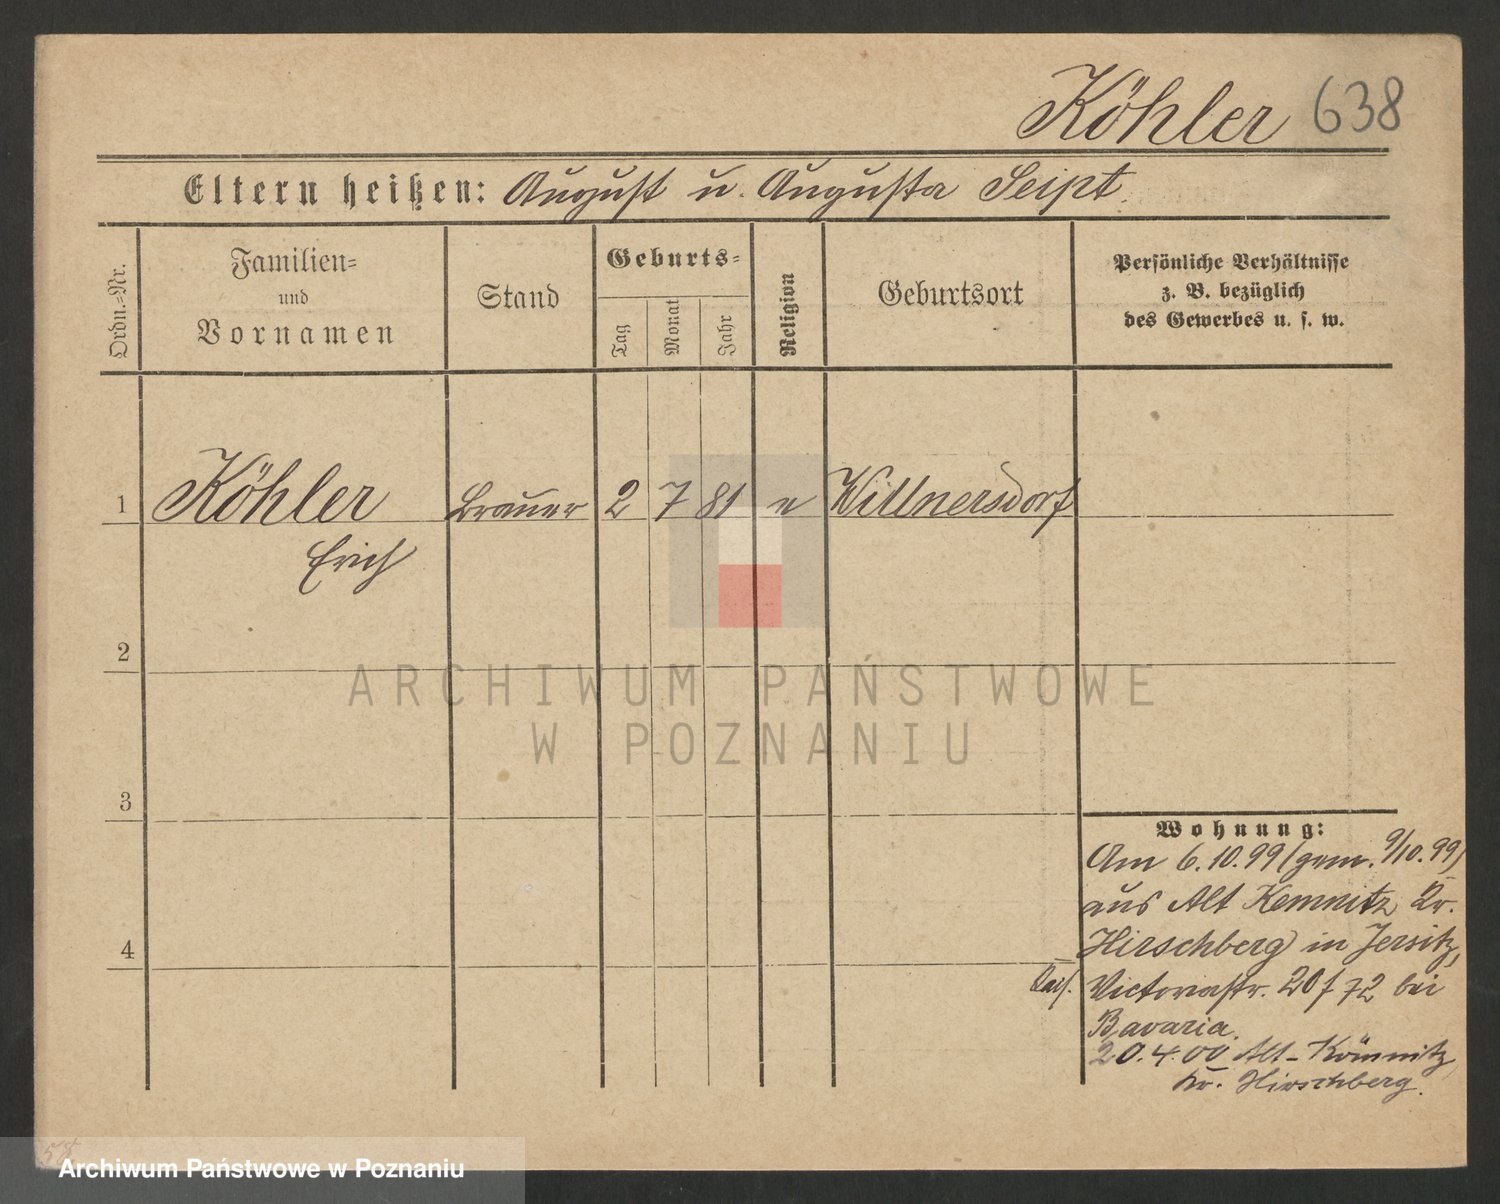 Köhler 638
Eltern heißen: August u. Augusta Seipt.
Ordn.=Nr.
Familien=
und
Vornamen
Stand
Geburts=
Tag
Monat
Jahr
Religion
Geburtsort
Persönliche Verhältnisse
z. B. bezüglich
des Gewerbes u. s. w.
1 Köhler Brauer 2 7 81 e Willnersdorf
Erich
2
3
4
ARCHIWUM PAŃSTWOWE
W POZNANIU
Wohnung:
Am 6.10.99 (gem. 9/10.99)
aus Alt Kemnitz Kr.
Hirschberg in Jersitz,
Kais. Victoriastr. 20/72 bei
Bavaria.
20.4.00 Alt-Kömnitz
Kr. Hirschberg.
58
Archiwum Państwowe w Poznaniu